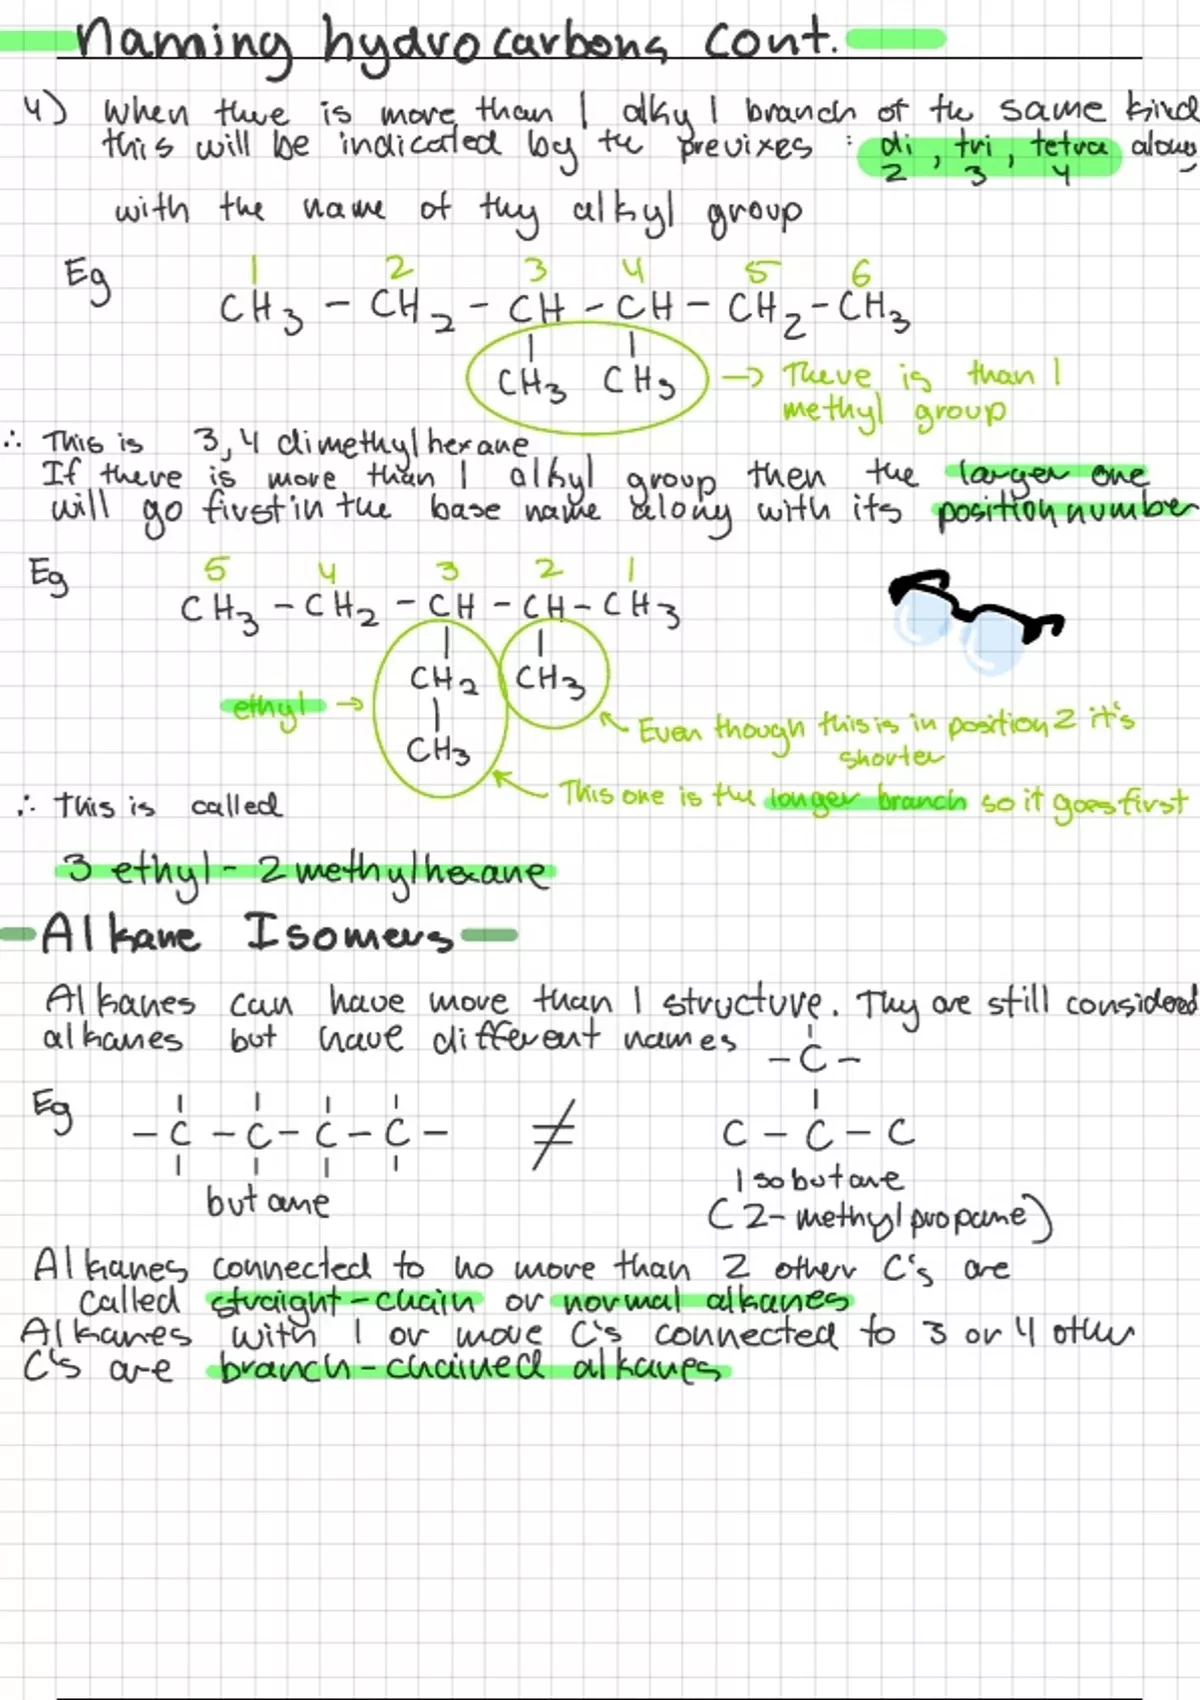 Naming hydrocarbons cont.
4) When there is more than 1 alkyl branch of the same kind
this will be indicated by the previxes : di, tri, tetra along
2 3 4
with the name of thy alkyl group
Eg
1 2 3 4 5 6
CH3 - CH2 - CH - CH - CH2 - CH3
CH3 CH3 → There is than 1
methyl group
∴ This is 3,4 dimethylhexane
If there is more than 1 alkyl group then the larger one
will go first in the base name along with its position number
Eg
5 4 3 2 1
CH3 - CH2 - CH - CH - CH3
CH2 CH3
ethyl →
Even though this is in position 2 it's
shorter
CH3
This one is the longer branch so it goes first
∴ This is called
3 ethyl - 2 methylhexane
Alkane Isomers
Alkanes can have more than 1 structure. Thy are still considered
alkanes but have different names
- C -
Eg
- C - C - C - C - ≠ C - C - C
butane
Isobutane
(2-methylpropane)
Alkanes connected to no more than 2 other C's are
called straight-chain or normal alkanes
Alkanes with 1 or more C's connected to 3 or 4 other
C's are branch-chained alkanes